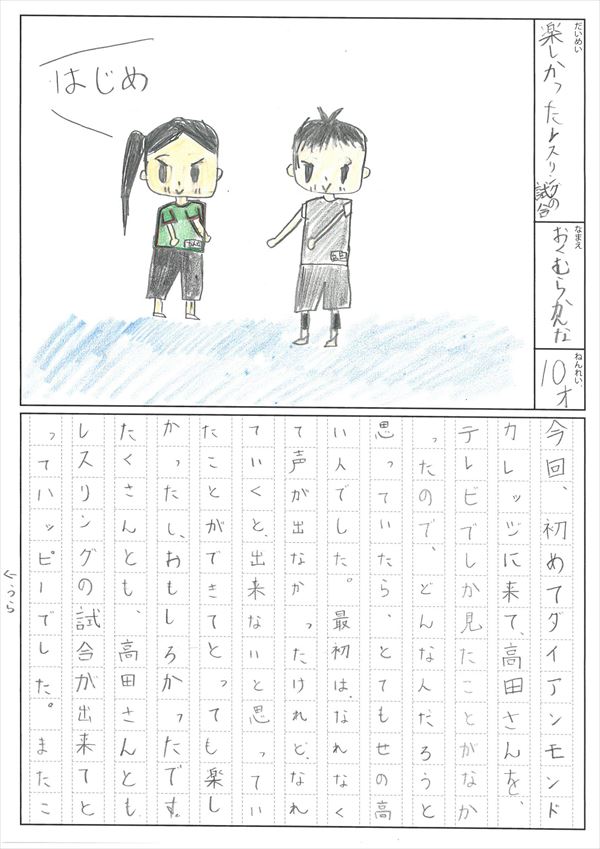 だいめい
楽しかったレスリングの試合
なまえ
おくむらかんな
ねんれい
10才
はじめ
今回、初めてダイアンモンド
カレッジに来て、高田さんを、
テレビでしか見たことがなか
ったので、どんな人だろうと
思っていたら、とてもせの高
い人でした。最初は、なれなく
て声が出なかったけれど、なれ
ていくと、出来ないと思ってい
たことができてとっても楽し
かったし、おもしろかったです。
たくさんとも、高田さんとも、
レスリングの試合が出来てと
ってハッピーでした。またこ
←うら